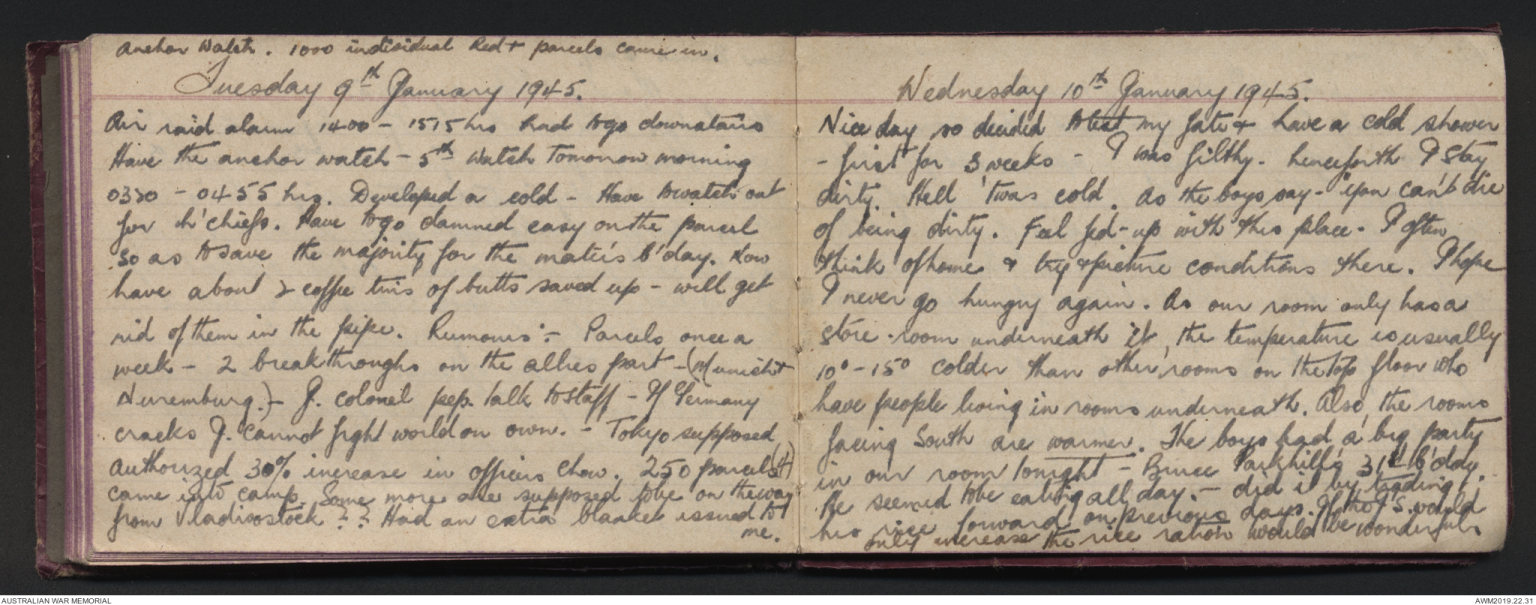 Anchor Watch. 1000 individual Red + parcels came in.
Tuesday 9th January 1945.
Air raid alarm 1400 - 1515 hrs had to go downstairs
Have the anchor watch - 5th Watch tomorrow morning
0330 - 0455 hrs. Developed a cold - Have to watch out
for h'chiefs. Have to go damned easy on the parcel
so as to save the majority for the mate's b'day. Now
have about 2 coffee tins of butts saved up - will get
rid of them in the pipe. Rumours :- Parcels once a
week - 2 breakthroughs on the allies part - (Munich +
Nuremburg.) - J. colonel pep talk to staff - If Germany
cracks J. cannot fight world on own. - Tokyo supposed
authorized 30% increase in officers chow. 250 parcels (+)
came into camp. Some more are supposed to be on the way
from Vladivostock ? ? Had an extra blanket issued to
me.
Wednesday 10th January 1945.
Nice day so decided to test my fate & have a cold shower
- first for 3 weeks - I was filthy. henceforth I stay
dirty. Hell 'twas cold. As the boys say - "you can't die
of being dirty. Feel fed-up with this place. I often
think of home & try & picture conditions there. I hope
I never go hungry again. As our room only has a
store-room underneath it, the temperature is usually
10° - 15° colder than other rooms on the top floor who
have people living in rooms underneath. Also the rooms
facing South are warmer. The boys had a big party
in our room tonight - Bruce Parkhill's 31st b'day.
He seemed to be eating all day. - did it by trading
his rice forward on previous days. If the J's would
only increase the rice ration would be wonderful.
AUSTRALIAN WAR MEMORIAL
AWM2019.22.31